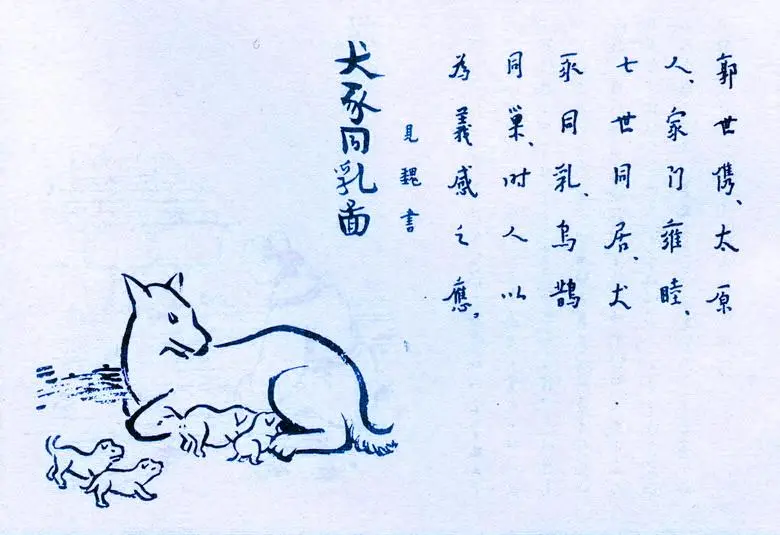 郭世儁、太原
人、家门雍睦、
七世同居、犬
豕同乳、烏鵲
同巢、时人以
為義感之應。
見魏書
犬豕同乳圖